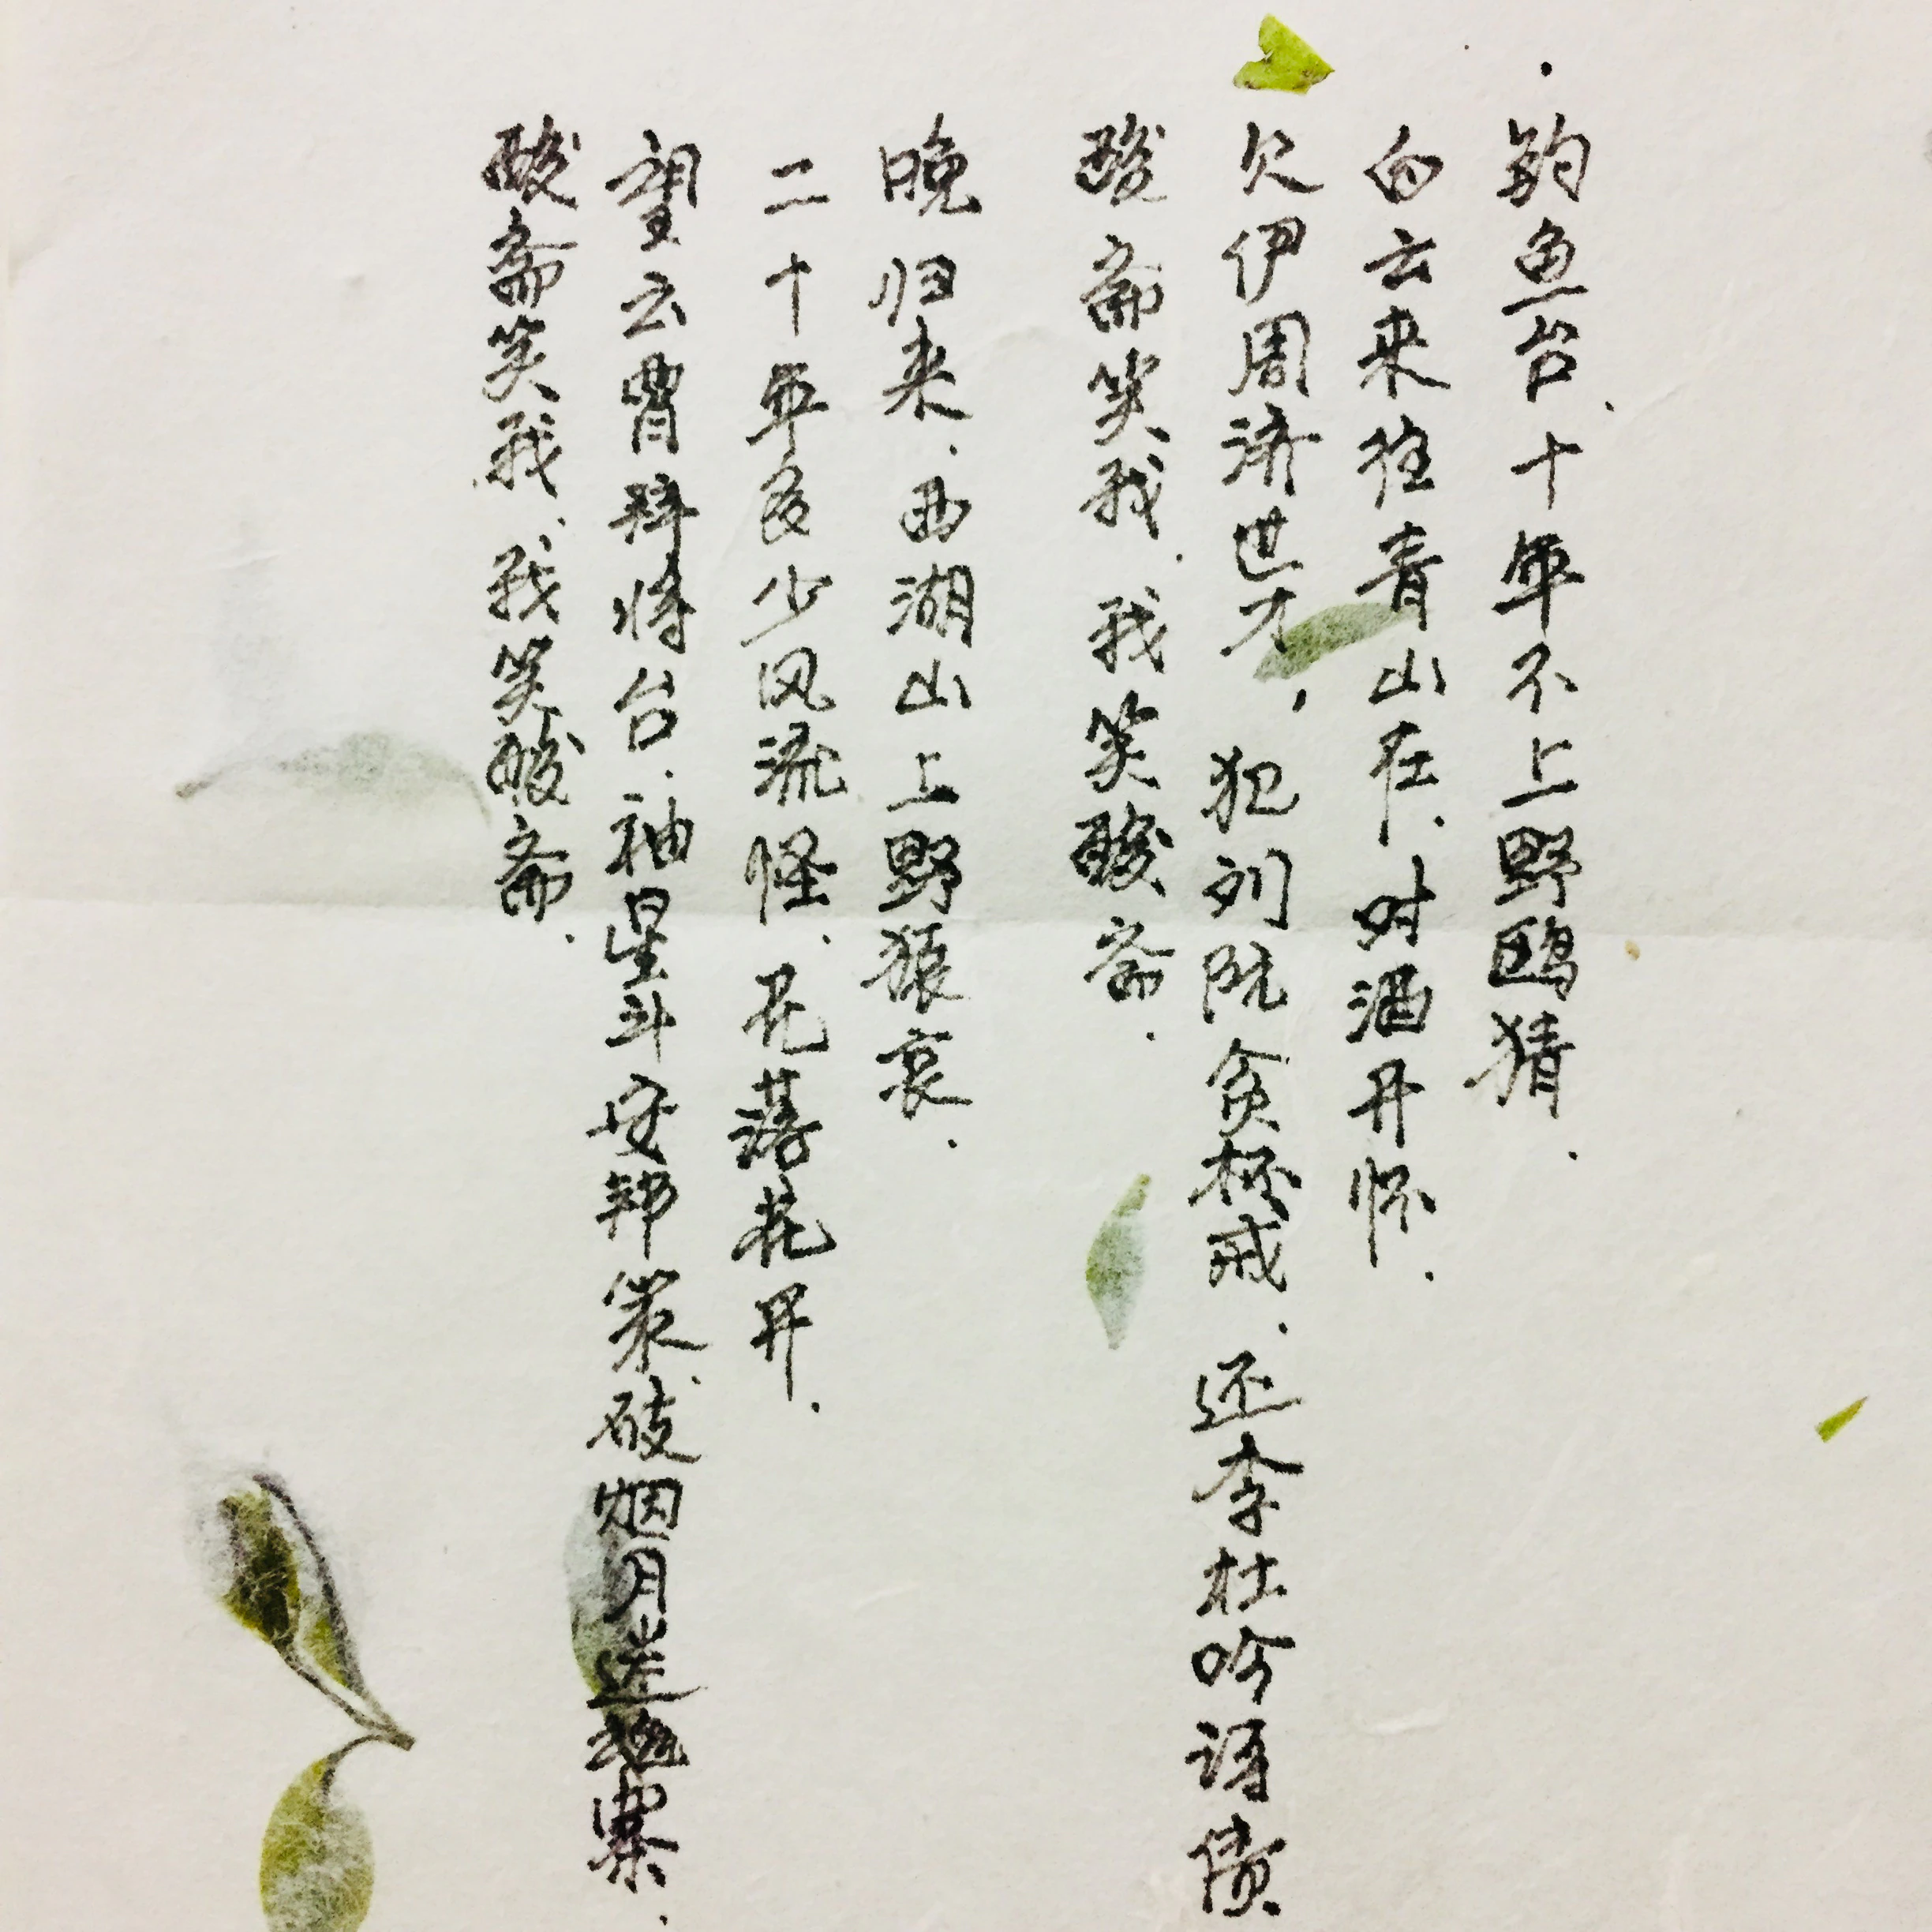 钓鱼台、十年不上野鸥猜.
白云来往青山在.对酒开怀.
欠伊周济世才,犯刘阮贪杯戒.还李杜吟诗债
酸斋笑我.我笑酸斋.
晚归来、西湖山上野猿哀.
二十年多少风流怪、花落花开.
望云霄拜将台.袖星斗安邦策、破烟月迷魂寨.
酸斋笑我、我笑酸斋.